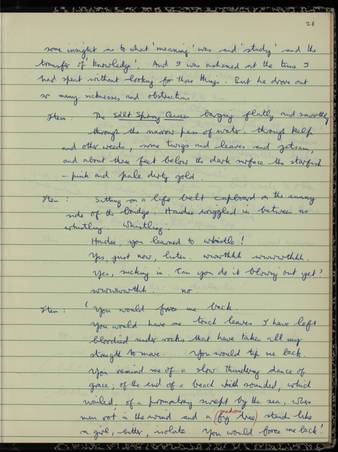 28
some insight as to what 'meaning' was and 'study' and the
transfer of knowledge'. And I was ashamed at the time I
had spent without looking for those things. But he drove out
so many sicknesses and obstructions
Item : The Salt Spring Queen barging flatly and smoothly
through the narrow pass of water. through kelp
and other weeds, some twigs and leaves and jetsam,
and about three feet below the dark surface the starfish
- pink and pale dirty gold
Item : Sitting on a life belt cupboard on the sunny
side of the bridge. Haidee wriggled in between us
whistling whistling.
Haidee, you learned to whistle!
Yes, just now, listen. wwwthhh wwwwthhh.
Yes, sucking in. Can you do it blowing out yet?
wwwwwthh no
Item : 'You would force me back
You would have me touch leaves I have left
bloodied under rocks that have taken all my
strength to move. You would tip me back
You remind me of a slow thundering dance of
grace, of the end of a beach with rounded, which
, of a promontory swept by the sea, where
men root in the wound and a (fig tree) stands like
a girl, bitter, isolate You would force me back!